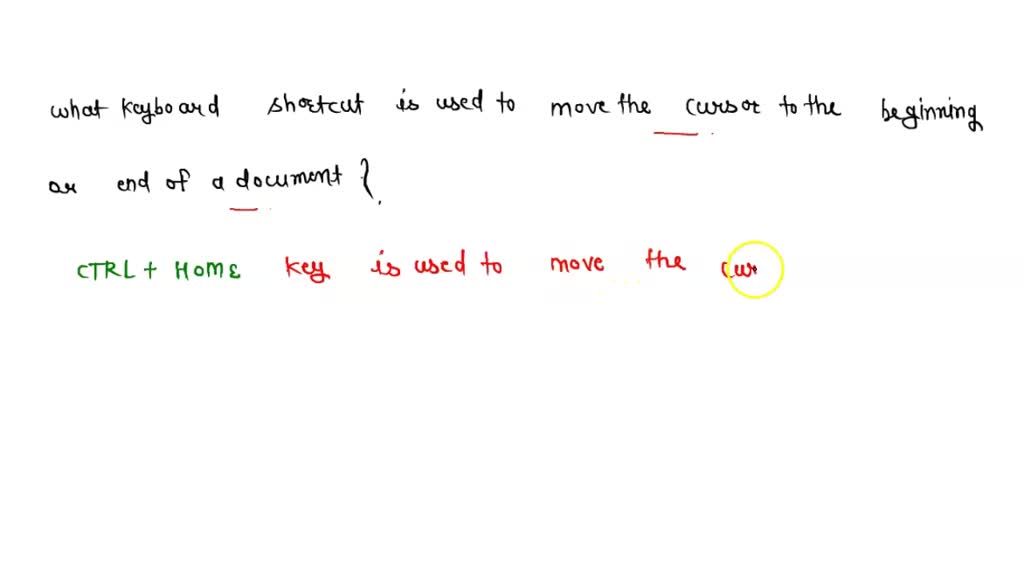 what keyboard shortcut is used to move the cursor to the beginning
or end of a document ?
CTRL + HOME key is used to move the cur